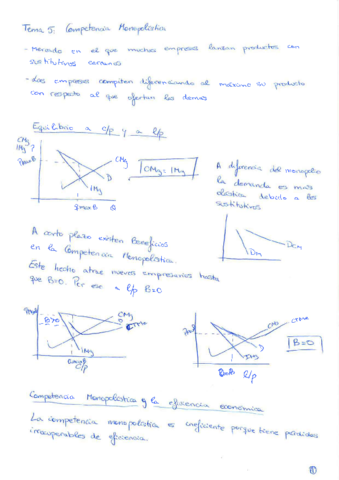 Tema 5: Competencia Monopolística
- Mercado en el que muchas empresas lanzan productos con
sustitutivos cercanos
- Las empresas compiten diferenciando al máximo su producto
con respecto al que ofertan los demás
Equilibrio a c/p y a l/p
CMg
IMg
P
CMg
D
IMg
Q
CMg = IMg
A diferencia del monopolio
la demanda es más
elástica debido a los
sustitutivos
Dm
Dcm
A corto plazo existen Beneficios
en la Competencia Monopolística.
Este hecho atrae nuevos empresarios hasta
que B=0. Por eso a l/p B=0
B>0
CMg
CTMe
D
IMg
c/p
CMg
CTMe
D
IMg
l/p
B=0
Competencia Monopolística y la eficiencia económica
La competencia monopolística es ineficiente porque tiene pérdidas
irrecuperables de eficiencia.